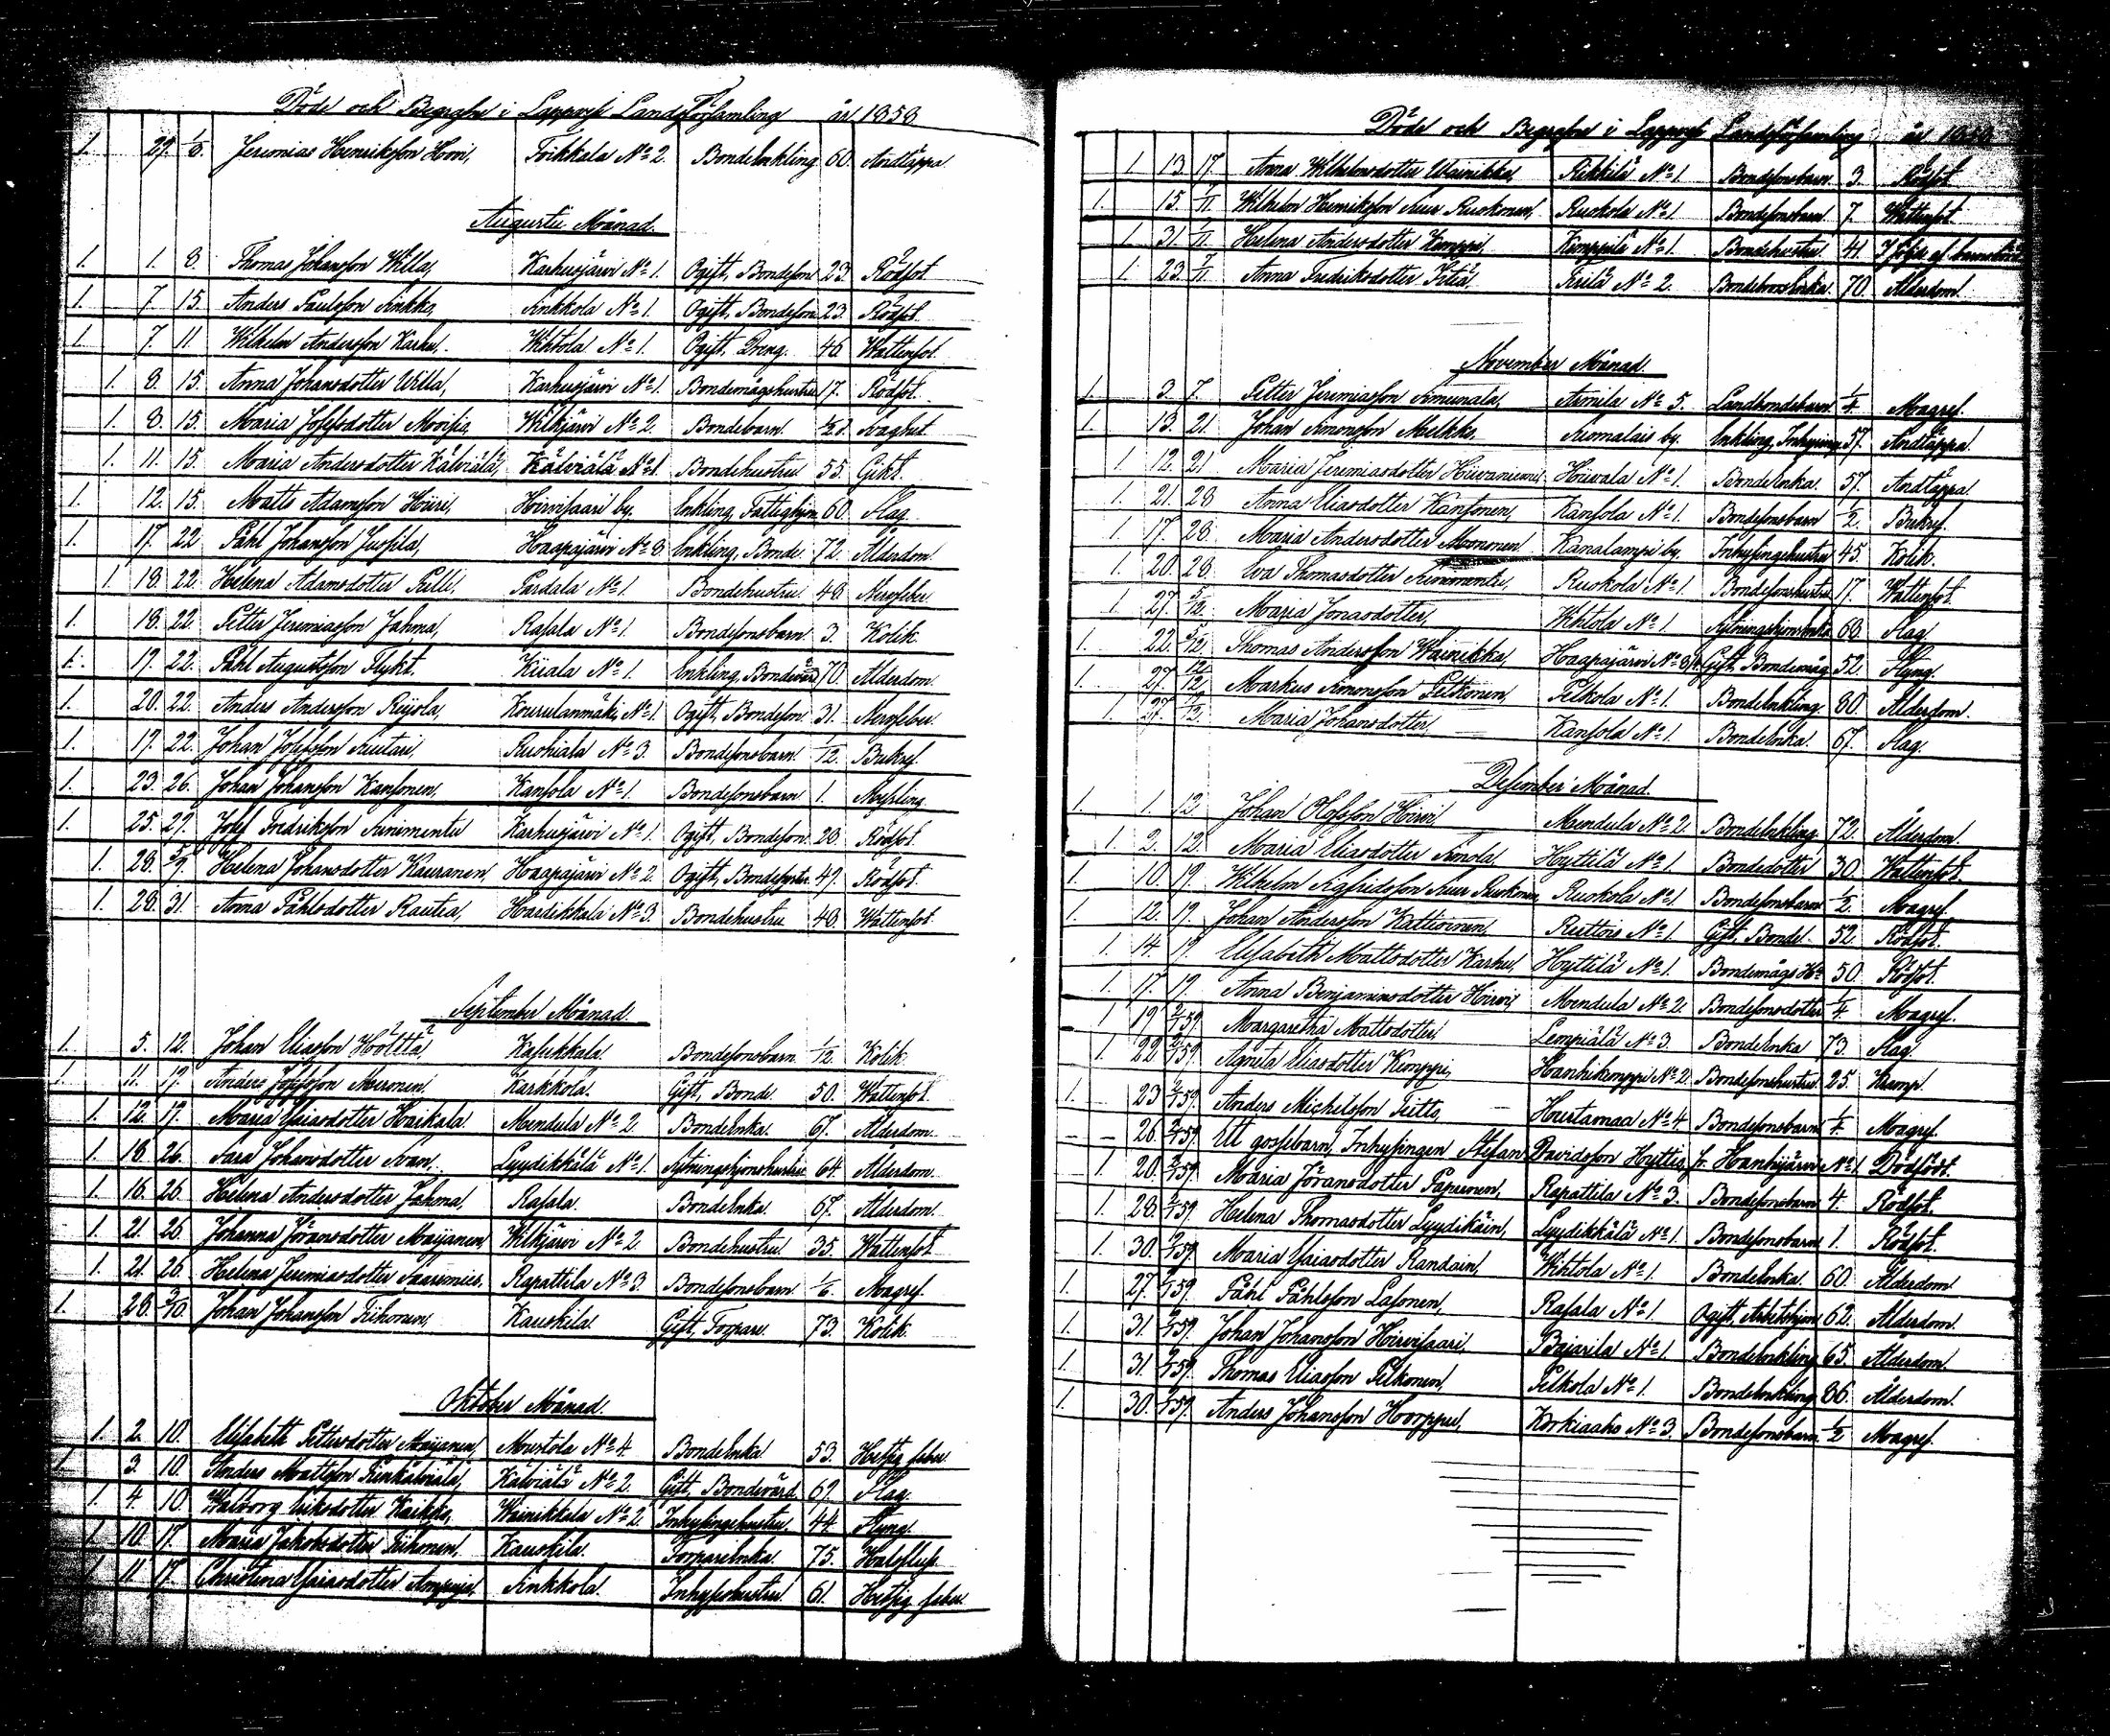 Döde och Begrafne i Lappvesi Landsförsamling år 1858
1. 29. 1/8. Jeremias Henriksson Hovi, Toikkala No 2. Bondeenkling 60. Andtäppa
Augusti Månad.
1. 1. 8. Thomas Johansson Willa, Karhusjärvi No 1. Ogift, Bondeson 23. Rödsot
1. 7. 15. Anders Paulsson Sinkko, Sinkkola No 1. Ogift, Bondeson 23. Rödsot
1. 7. 11. Wilhelm Andersson Karhu, Wihtola No 1. Ogift, Dreng. 46. Wattensot.
1. 8. 15. Anna Johansdotter Willa, Karhusjärvi No 1. Bondemågshustru 17. Rödsot.
1. 8. 15. Maria Josefsdotter Moisio, Wilkjärvi No 2. Bondebarn. Svaghet.
1. 11. 15. Maria Andersdotter Kälviälä, Kälviälä No 1. Bondehustru 55. Gikt.
1. 12. 15. Matts Adamsson Hiiri, Hirvisaari by. Enkling, Fattighjon 60. Slag
1. 17. 22. Påhl Johansson Jussila, Haapajärvi No 8 Enkling, Bonde. 72. Ålderdom
1. 18. 22. Helena Adamsdotter Pilli, Pardala No 1. Bondehustru 48. Nervfeber.
1. 18. 22. Petter Jeremiasson Jahma, Rasala No 1. Bondesonsbarn. 3. Kolik.
1. 17. 22. Påhl Augustsson Flykt. Kiiala No 1. Enkling, Bondevärd 70. Ålderdom.
1. 20. 22. Anders Andersson Reijola, Kourulanmäki, No 1. Ogift, Bondeson. 31. Nervfeber.
1. 17. 22. Johan Josefsson Suutari, Ruohiala No 3. Bondesonsbarn. 1/12. Bukref.
1. 23. 26. Johan Johansson Kansonen, Kansola No 1. Bondesonsbarn 1. Messling.
1. 25. 29. Josef Fredriksson Sinimentu Karhusjärvi No 1. Ogift, Bondeson. 28. Rödsot.
1. 28. 5/9. Helena Johansdotter Kauranen, Haapajärvi No 2. Ogift, 49. Rödsot.
1. 28. 31. Anna Påhlsdotter Rautia, Hardikkala No 3. Bondehustru 48. Wattensot.
September Månad
1. 5. 12. Johan Eliasson Hölttä, Kasukkala. Bondesonsbarn. 1/12. Kolik.
1. 11. 17. Anders Josefsson Muronen. Karkkola. Gift, Bonde. 50. Wattensot.
1. 12. 17. Maria Esaiasdotter Huikala Mendula No 2. Bondeenka. 67. Ålderdom.
1. 18. 26. Sara Johansdotter Svan, Lyydikkälä No 1. Sytningshjonshustru 64. Ålderdom.
1. 16. 26. Helena Andersdotter Jahma, Rasala. Bondeenka. 67. Ålderdom.
1. 21. 26. Johanna Göransdotter Maijanen, Wilkjärvi No 2. Bondehustru. 35. Wattensot
1. 21. 26. Helena Jeremiasdotter Saaremies, Rapattila No 3. Bondesonsbarn. 1/6. Magref.
1. 26. 3/10. Johan Johansson Tiihonen, Kauskila. Gift, Torpare. 73. Kolik.
Oktober Månad.
1. 2. 10. Elisabeth Pettersdotter Maijanen, Mustola No 4. Bondeenka 53. Hettsig feber.
1. 3. 10. Anders Mattsson Kälviälä No 2. Gift, Bondevärd. 69. Slag.
1. 4. 10 Walborg Eriksdotter Kaikko, Wainikkala No 2. Inhysingshustru. 44. Styng.
1. 10. 17. Maria Jakobsdotter Tiihonen, Kauskila. Torpareenka. 75. Halsfluss.
1. 11. 17. Christina Esaiasdotter Ampuja, Sinkkola. Inhyseshustru. 61. Hettsig feber.
Döde och Begrafne i Lappvesi Landsförsamling år 1858
1. 13. 17. Anna Wilhelmsdotter Wainikka, Rikkilä No 1. Bondesonsbarn. 3. Rödsot.
1. 15. 7/11. Wilhelm Henriksson Suur Ruokonen, Ruokola No 1. Bondesonsbarn. 7. Wattensot.
1. 31. 7/11. Helena Andersdotter Kemppi, Kemppilä No 1. Bondehustru. 41. I följd af barnsbörd
1. 23. 7/11. Anna Fredriksdotter Kriiä, Kriilä No 2. 70. Ålderdom.
November Månad
1. 3. 7. Petter Jeremiasson Simunala, Armila No 5. Landbondebarn. 1/4. Magref.
1. 13. 21. Johan Simonsson Mielkko, Suomalais by. Enkling, Inhysing 57. Andtäppa.
1. 12. 21. Maria Jeremiasdotter Huvaniemi, Hiivala No 1. Bondeenka. 57. Andtäppa
1. 21. 28. Anna Eliasdotter Kansonen, Kansola No 1. Bondesonsbarn 1/2. Bukref.
1. 17. 28. Maria Andersdotter Mononen Kanalampi by. Inhysingshustru 45. Kolik.
1. 20. 28. Eva Thomasdotter Sinimentu, Ruokola No 1. Bondesonshustru 17. Wattensot.
1. 27. 5/12. Maria Jonasdotter, Wihtola No 1. Sytningshjonsenka 68. Slag
1. 22. 5/12. Thomas Andersson Wainikka, Haapajärvi No Gift, Bondemåg. 52. Styng.
1. 27. 12/12. Markus Simonsson Pelkonen, Pelkola No 1. Bondeenkling. 80. Ålderdom.
1. 27. 12/12. Maria Johansdotter, Kansola No 1. Bondeenka. 67. Slag.
Desember Månad
1. 1. 12. Johan Olofsson Hirvi, Mendula No 2. Bondeenkling. 72. Ålderdom.
1. 2. 12. Maria Eliasdotter Simola, Hyttilä No 1. Bondedotter 30. Wattensot.
1. 10. 19. Wilhelm Sigfridsson Suur Ruokonen, Ruokola No 1. Bondesonsbarn 1/2. Magref.
1. 12. 19. Johan Andersson Kattwinen, Ruittois No 1. Gift, Bonde. 52. Rödsot.
1. 14. 19. Elisabeth Mattsdotter Karhu, Hyttilä No 1. Bondemågs Hu 50. Rödsot.
1. 17. 19. Anna Benjaminsdotter Hirvi, Mendula No 2. Bondesonsdotter 1/4. Magref.
1. 19 2/1 59. Margaretha Mattsdotter, Lempiälä No 3. Bondeenka 73. Slag.
1. 22 2/1 59. Agneta Eliasdotter Kemppi, Hanhikemppi No 2. Bondesonshustru 25. Kramp.
1. 23 2/1 59. Anders Michelsson Teitto, Hurtamaa No 4. Bondesonsbarn 1/4. Magref.
26. 2/1 59. Ett gossebarn, Inhysingen Stefan Davidsson Hyttig, fr. Hanhijärvi No 1. Dödfödt.
1. 20. 2/1 59. Maria Göransdotter Papunen, Rapattila No 3. Bondesonsbarn 4. Rödsot.
1. 28. 2/1 59. Helena Thomasdotter Lyydikäin, Lyydikkälä No 1. Bondesonsbarn 1. Rödsot.
1. 30. 2/1 59. Maria Esaiasdotter Randain, Wihtola No 1. Bondeenka. 60. Ålderdom.
1. 27. 2/1 59. Påhl Påhlsson Lasonen, Rasala No 1. Ogift, Arbetshjon 62. Ålderdom.
1. 31. 2/1 59. Johan Johansson Hirvisaari, Bajarila No 1. Bondeenkling 65. Ålderdom
1. 31. 2/1 59. Thomas Eliasson Pelkonen, Pelkola No 1. Bondeenkling 86. Ålderdom.
1. 30. 2/1 59. Anders Johansson Huoppu, Korkiaaho No 3. Bondesonsbarn. 1/2 Magref.